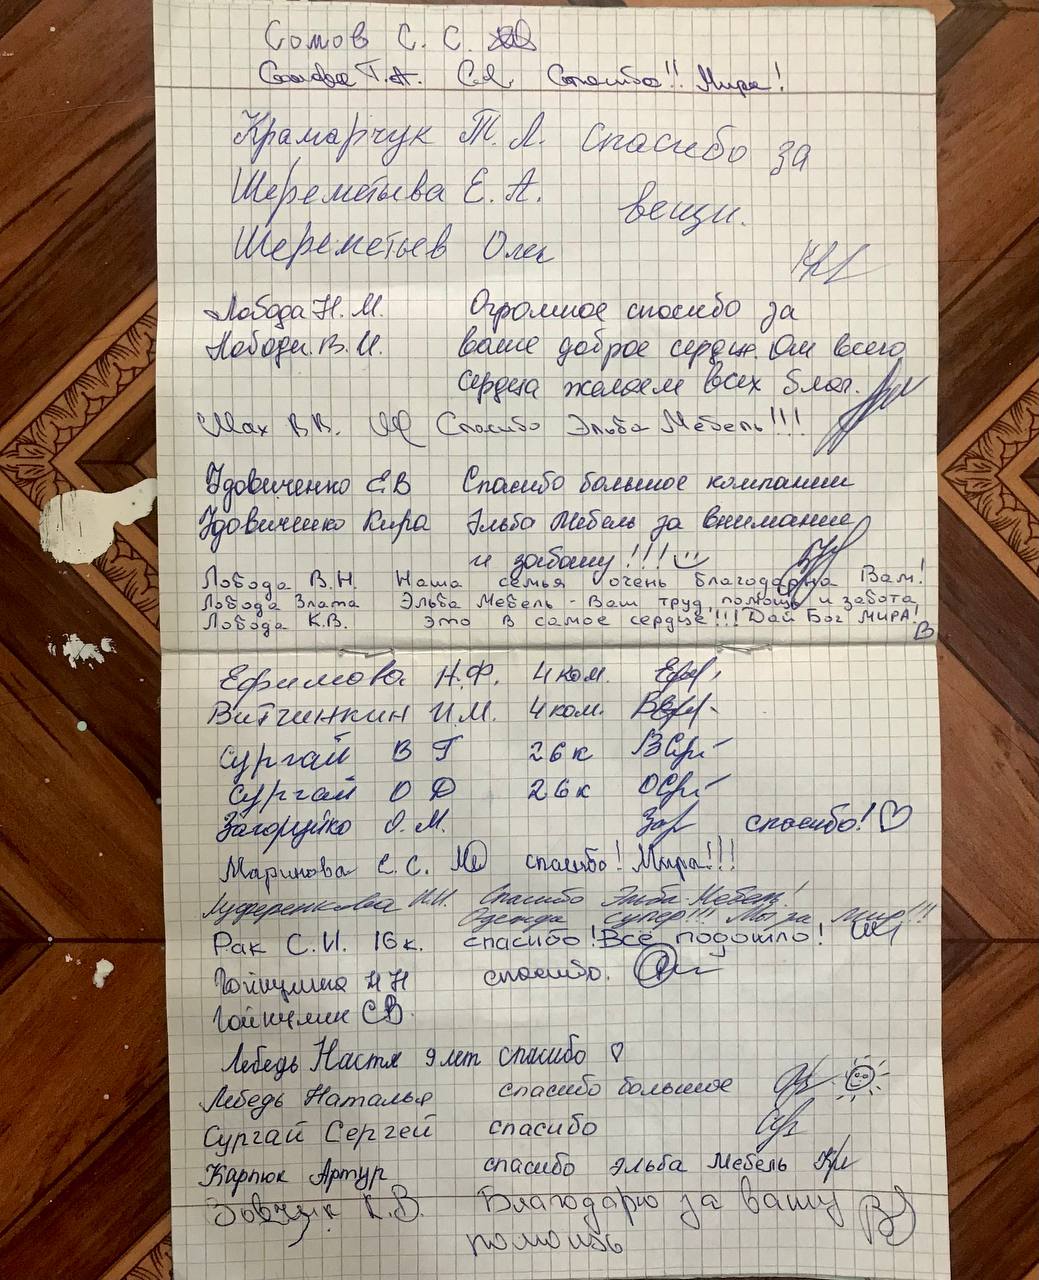 Сомов С. С.
Сомова Т.А. Спасибо!! Мира!
Крамарчук Т. Л. Спасибо за
Шереметьева Е. А. вещи.
Шереметьев Олег
Лобода Н. М. Огромное спасибо за
Лобода В. И. ваше доброе сердце. От всего
сердца желаем всех благ.
Мах В.В. Спасибо Эльба Мебель!!!
Удовиченко Е В Спасибо большое компании
Удовиченко Кира Эльба Мебель за внимание
и заботу!!!
Лобода В.Н. Наша семья очень благодарна Вам!
Лобода Злата Эльба Мебель - Ваш труд, помощь и забота
Лобода К.В. это в самое сердце!!! Дай Бог МИРА!
Ефимова Н.Ф. 4 ком.
Витчинкин И.М. 4 ком.
Сургай В Г 26 к
Сургай О Д 26 к
Загоруйко О.М. спасибо!
Маринова Е. С. спасибо! Мира!!!
Спасибо Эльба Мебель!
Одежда супер!!! Мы за мир!!!
Рак С.И. 16 к. спасибо! Всё подошло!
Н Н спасибо.
С В.
Лебедь Настя 9 лет спасибо
Лебедь Наталья спасибо большое
Сургай Сергей спасибо
Карпюк Артур спасибо Эльба Мебель
К.В. Благодарю за вашу
помощь